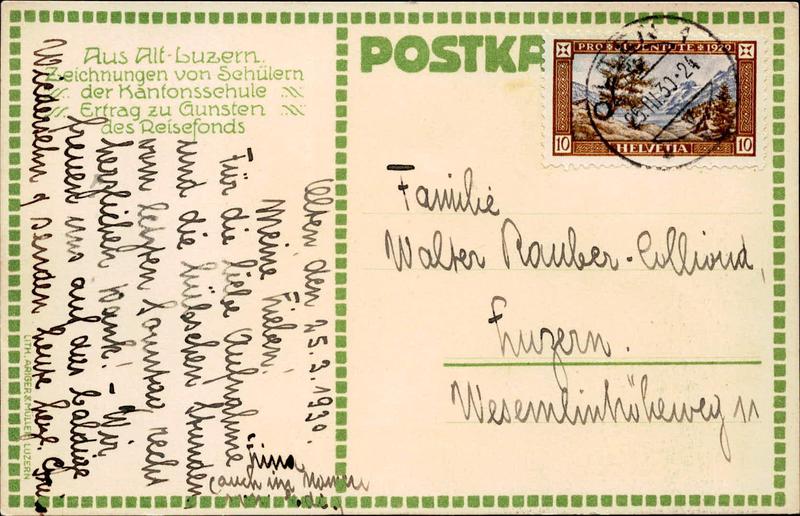 Aus Alt-Luzern.
Zeichnungen von Schülern
der Kantonsschule
Ertrag zu Gunsten
des Reisefonds
POSTKA
PRO JUVENTUTE 1929
10 HELVETIA 10
OLTEN 1
25.III.30.-24
Familie
Walter Rauber-Colliond,
Luzern.
Wesemlinhöheweg 11
Olten, den 25.3.1930.
Meine Lieben!
Für die liebe Aufnahme
und die hübschen Stunden
vom letzten Sonntag recht
herzlichen Dank! - Wir
freuen uns auf das baldige
Wiedersehn & senden heute herzl.
(auch im Namen
LITH. ARIGER & MÜLLER, LUZERN